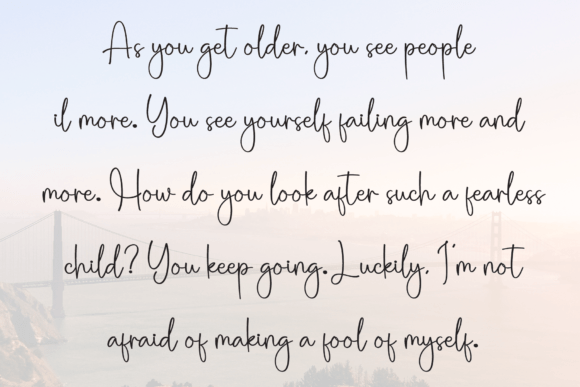 As you get older, you see people
il more. You see yourself failing more and
more. How do you look after such a fearless
child? You keep going. Luckily, I'm not
afraid of making a fool of myself.